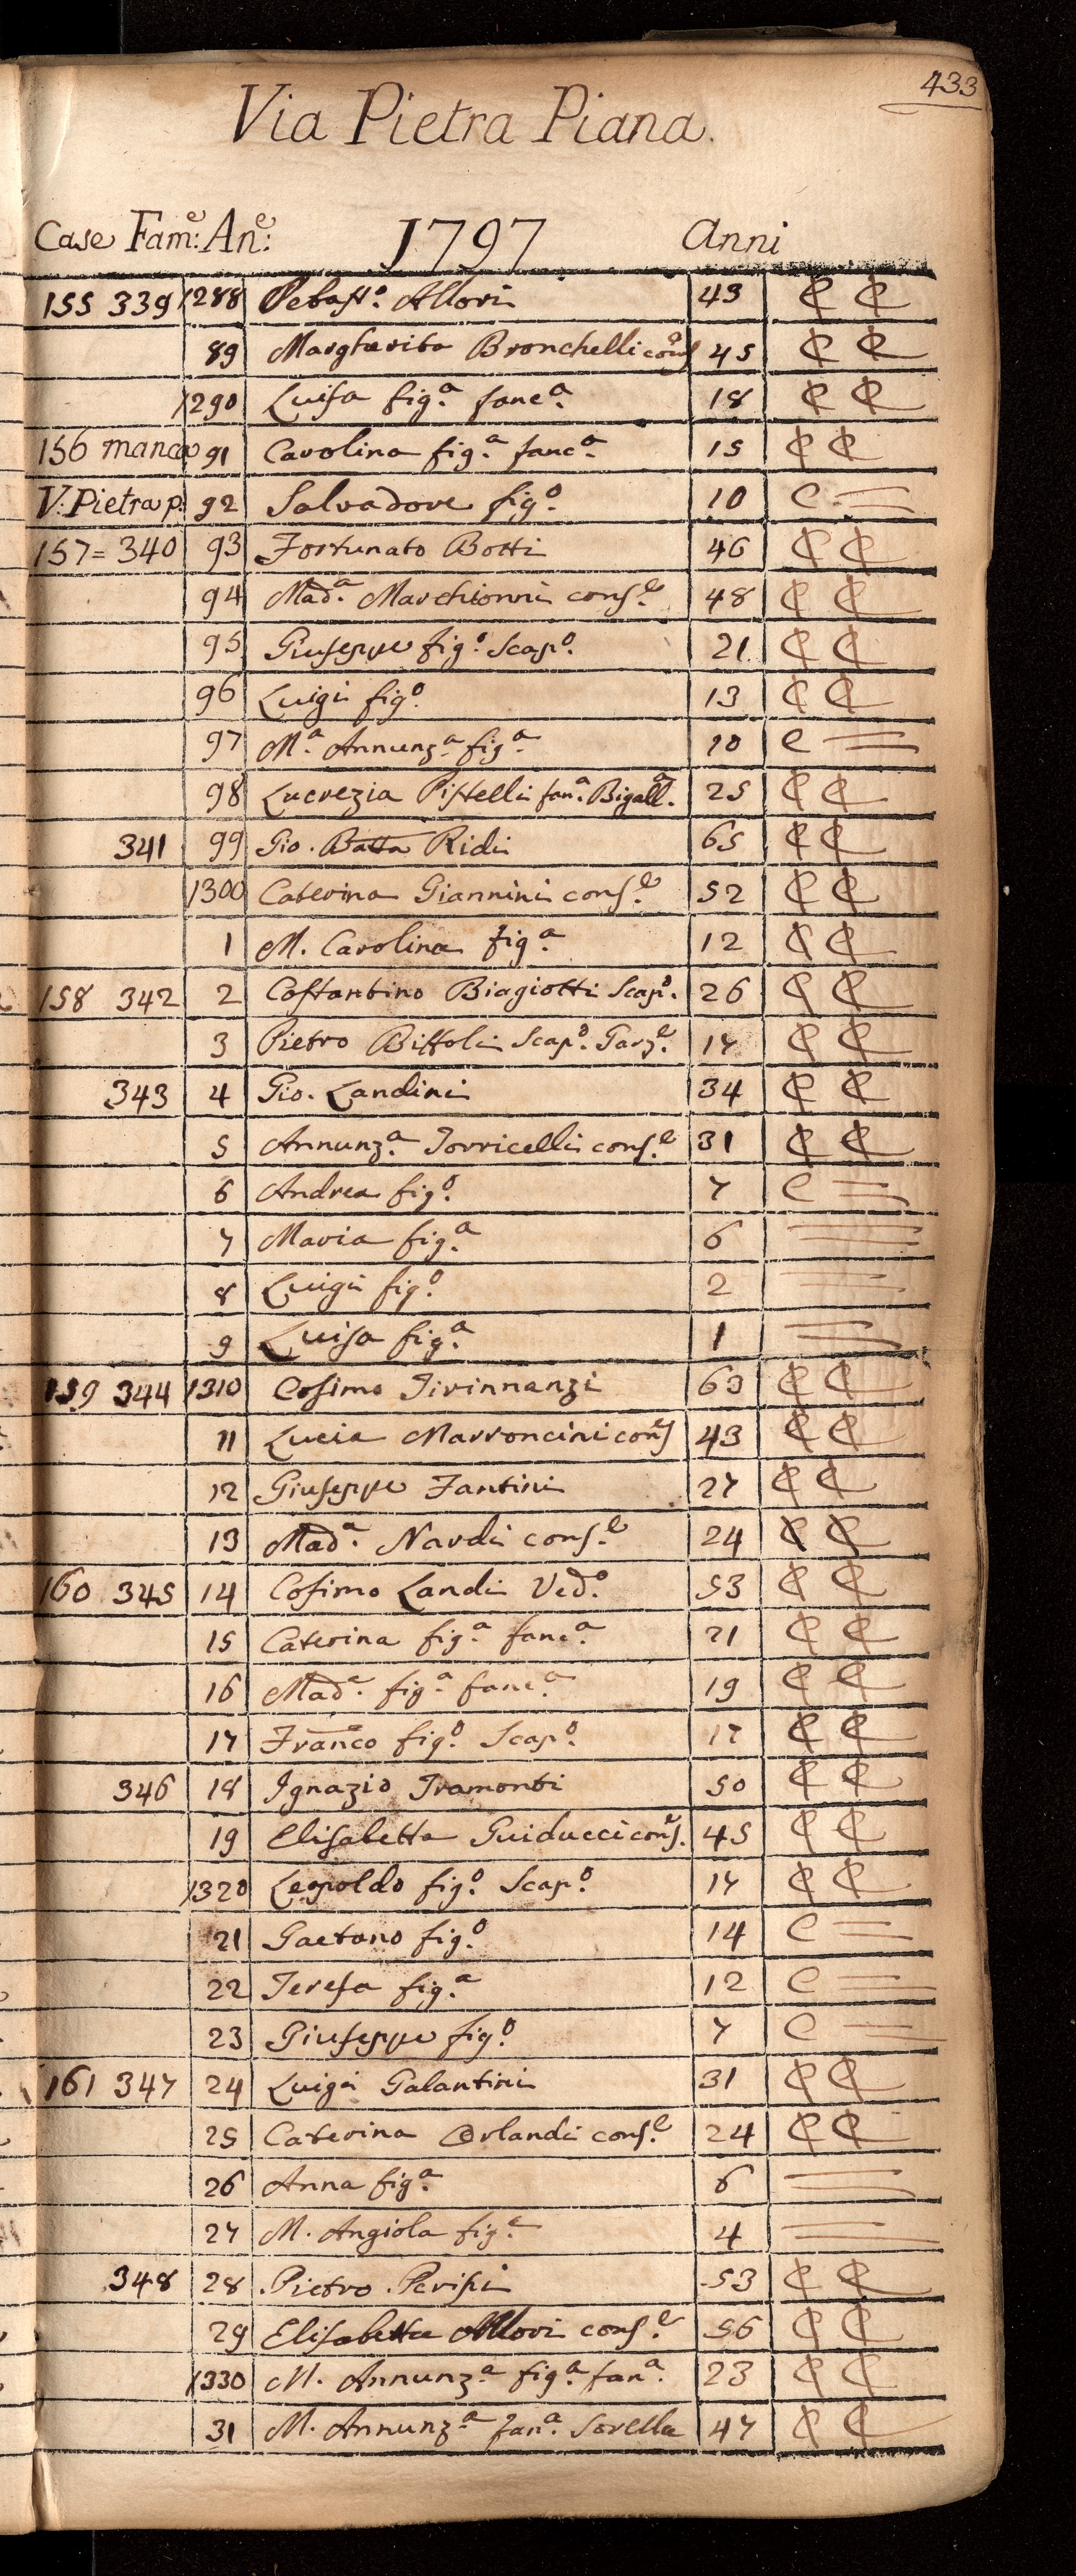 433
Via Pietra Piana.
Case Fam.e: An.e: 1797 Anni
155 339 1288 Sebast.o Allori 43 C C
89 Margherita Bronchelli cons.e 45 C C
1290 Luisa fig.a fanc.a 18 C C
156 manca 91 Carolina fig.a fanc.a 15 C C
V: Pietra p. 92 Salvadore fig.o 10 C =
157 = 340 93 Fortunato Botti 46 C C
94 Mad.a Marchionni cons.e 48 C C
95 Giuseppe fig.o Scap.o 21 C C
96 Luigi fig.o 13 C C
97 M.a Annunz.a fig.a 10 C =
98 Lucrezia Pistelli fan.a Bigall.a 25 C C
341 99 Gio. Batta Ridi 65 C C
1300 Caterina Giannini cons.e 52 C C
1 M. Carolina fig.a 12 C C
158 342 2 Costantino Biagiotti Scap.o 26 C C
3 Pietro Bittoli Scap.o Garz.e 17 C C
343 4 Gio. Landini 34 C C
5 Annunz.a Torricelli cons.e 31 C C
6 Andrea fig.o 7 C =
7 Maria fig.a 6 =
8 Luigi fig.o 2 =
9 Luisa fig.a 1 =
159 344 1310 Cosimo Tirinnanzi 63 C C
11 Lucia Marroncini cons.e 43 C C
12 Giuseppe Fantini 27 C C
13 Mad.a Nardi cons.e 24 C C
160 345 14 Cosimo Landi Ved.o 53 C C
15 Caterina fig.a fanc.a 21 C C
16 Mad.a fig.a fanc.a 19 C C
17 Franco fig.o Scap.o 17 C C
346 18 Ignazio Tramonti 50 C C
19 Elisabetta Guiducci cons.e 45 C C
1320 Leopoldo fig.o Scap.o 17 C C
21 Gaetano fig.o 14 C =
22 Teresa fig.a 12 C =
23 Giuseppe fig.o 7 C =
161 347 24 Luigi Galantini 31 C C
25 Caterina Orlandi cons.e 24 C C
26 Anna fig.a 6 =
27 M. Angiola fig.a 4 =
348 28 Pietro Parisi 53 C C
29 Elisabetta Allori cons.e 56 C C
1330 M. Annunz.a fig.a fan.a 23 C C
31 M. Annunz.a fan.a Sorella 47 C C